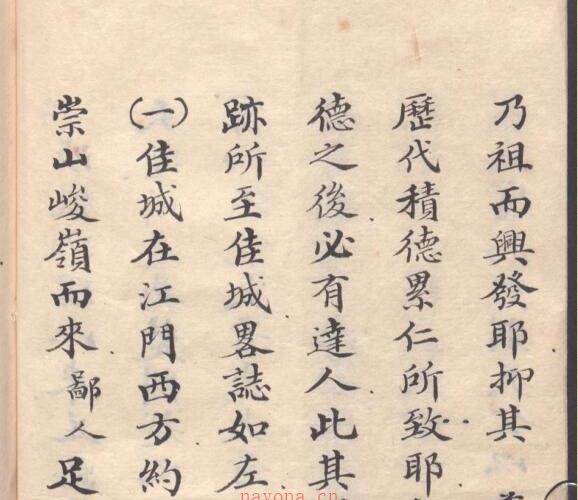 乃祖而興發耶抑其
歷代積德累仁所致耶
德之後必有達人此其
跡所至佳城畧誌如左
(一)佳城在江門西方約
崇山峻嶺而來鄙人足
nayona.cn